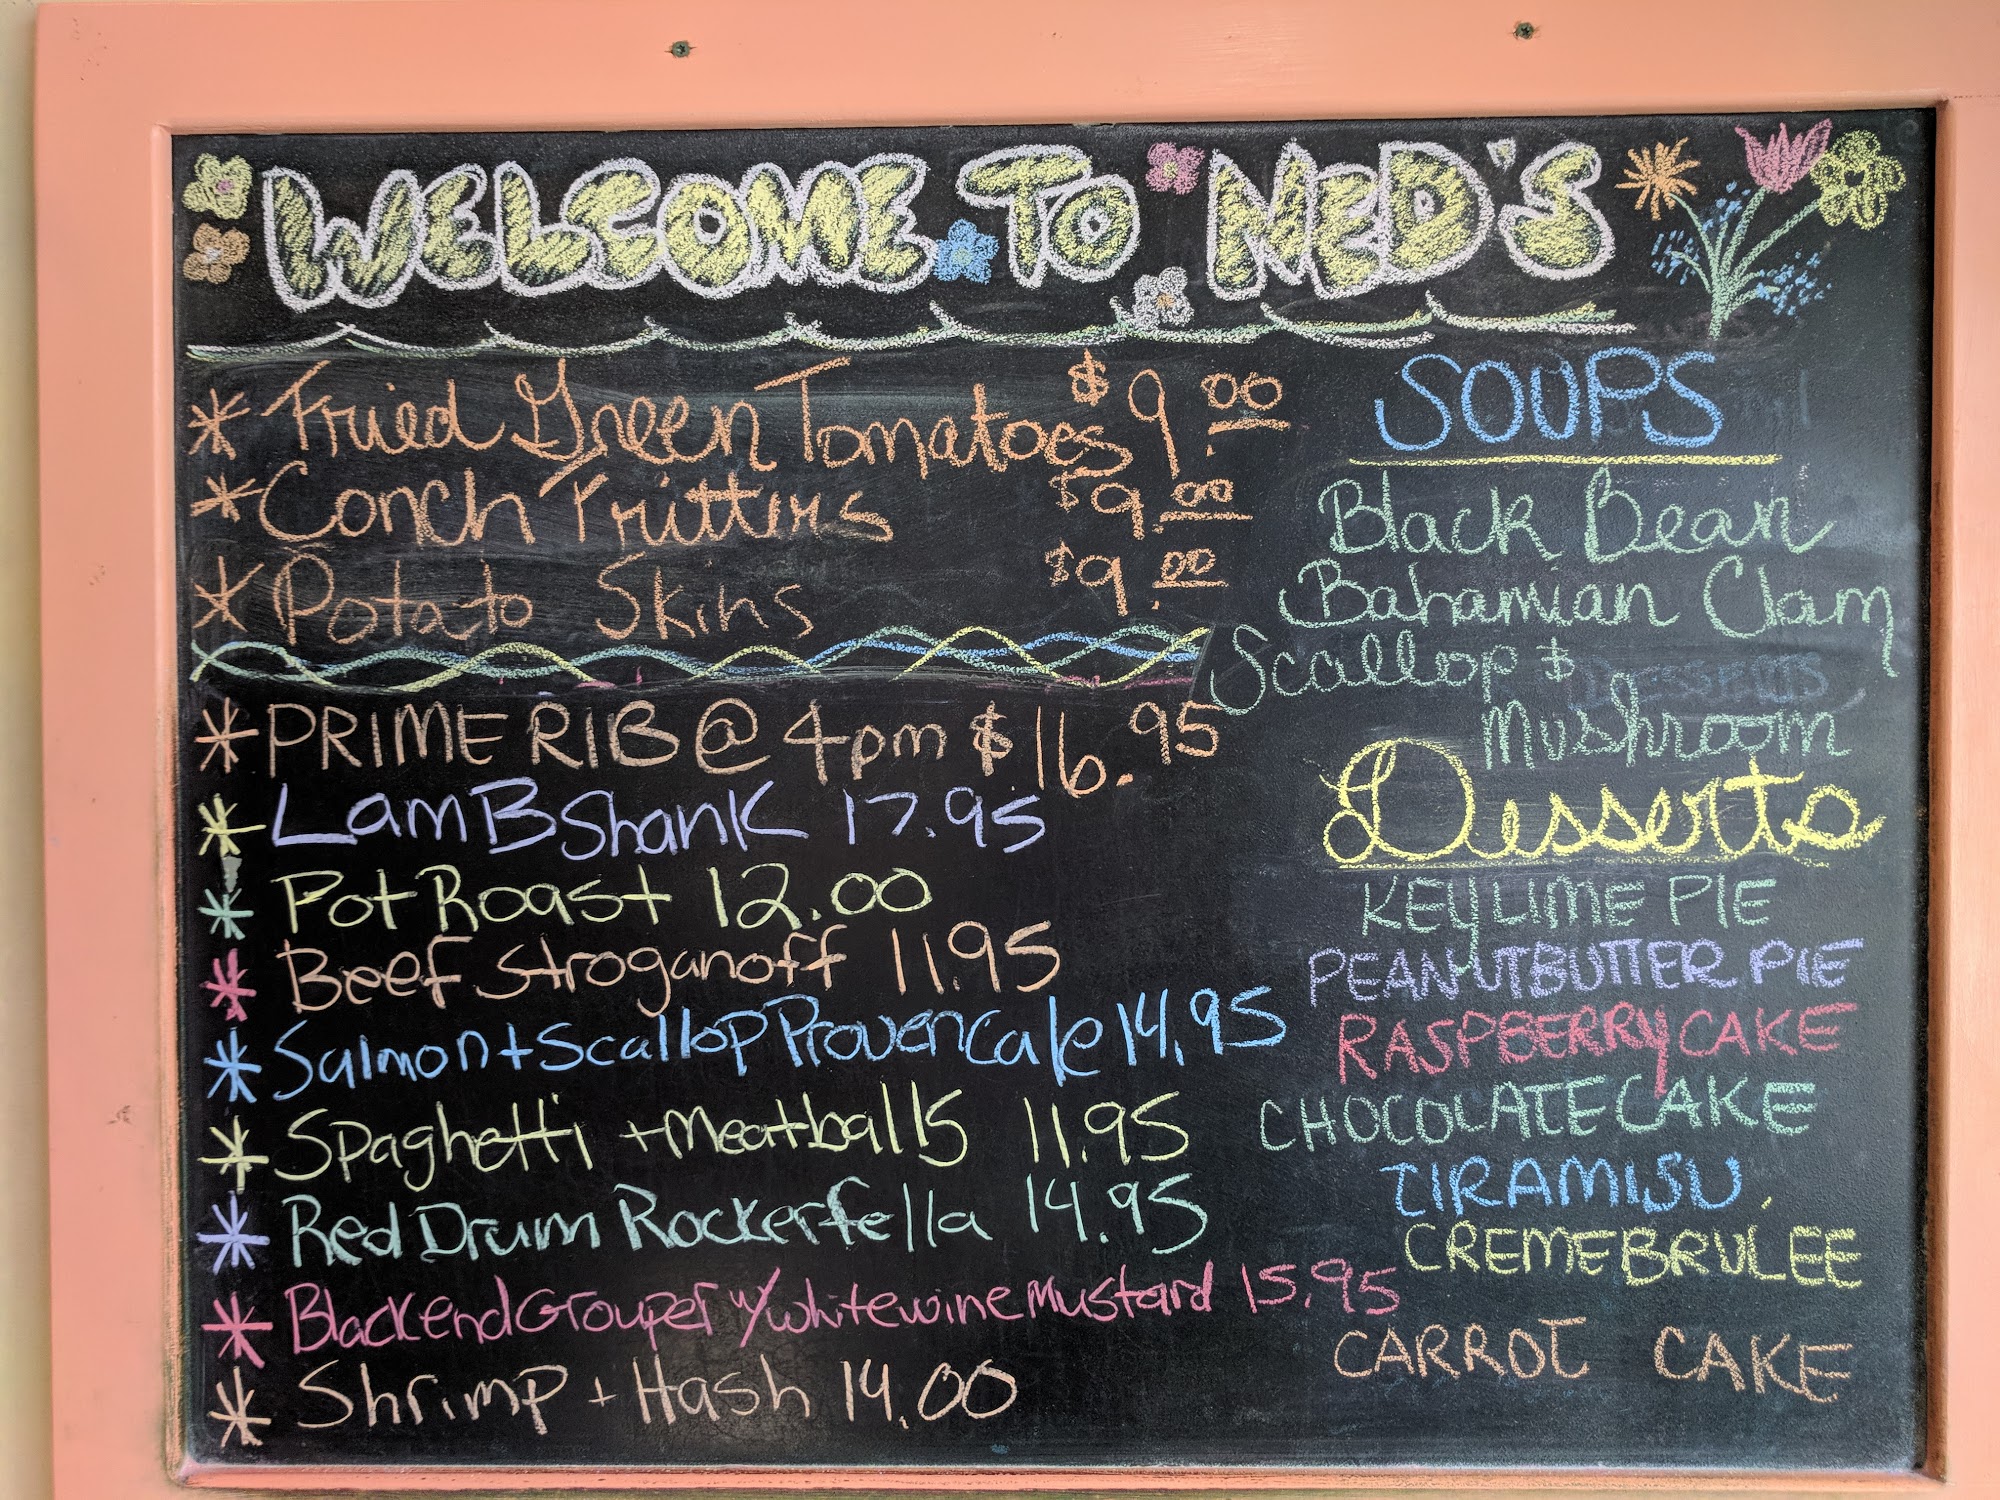 WELCOME TO NED'S
* Fried Green Tomatoes $9.00
* Conch Fritters $9.00
* Potato Skins $9.00
* PRIME RIB @ 4pm $16.95
* LamB Shank 17.95
* Pot Roast 12.00
* Beef Stroganoff 11.95
* Salmon + Scallop Provencale 14.95
* Spaghetti + Meatballs 11.95
* Red Drum Rockerfella 14.95
* Blackend Grouper w/ white wine Mustard 15.95
* Shrimp + Hash 14.00
SOUPS
Black Bean
Bahamian Clam
Scallop &
Mushroom
Desserts
KEY LIME PIE
PEANUT BUTTER PIE
RASPBERRY CAKE
CHOCOLATE CAKE
TIRAMISU
CREME BRULÉE
CARROT CAKE